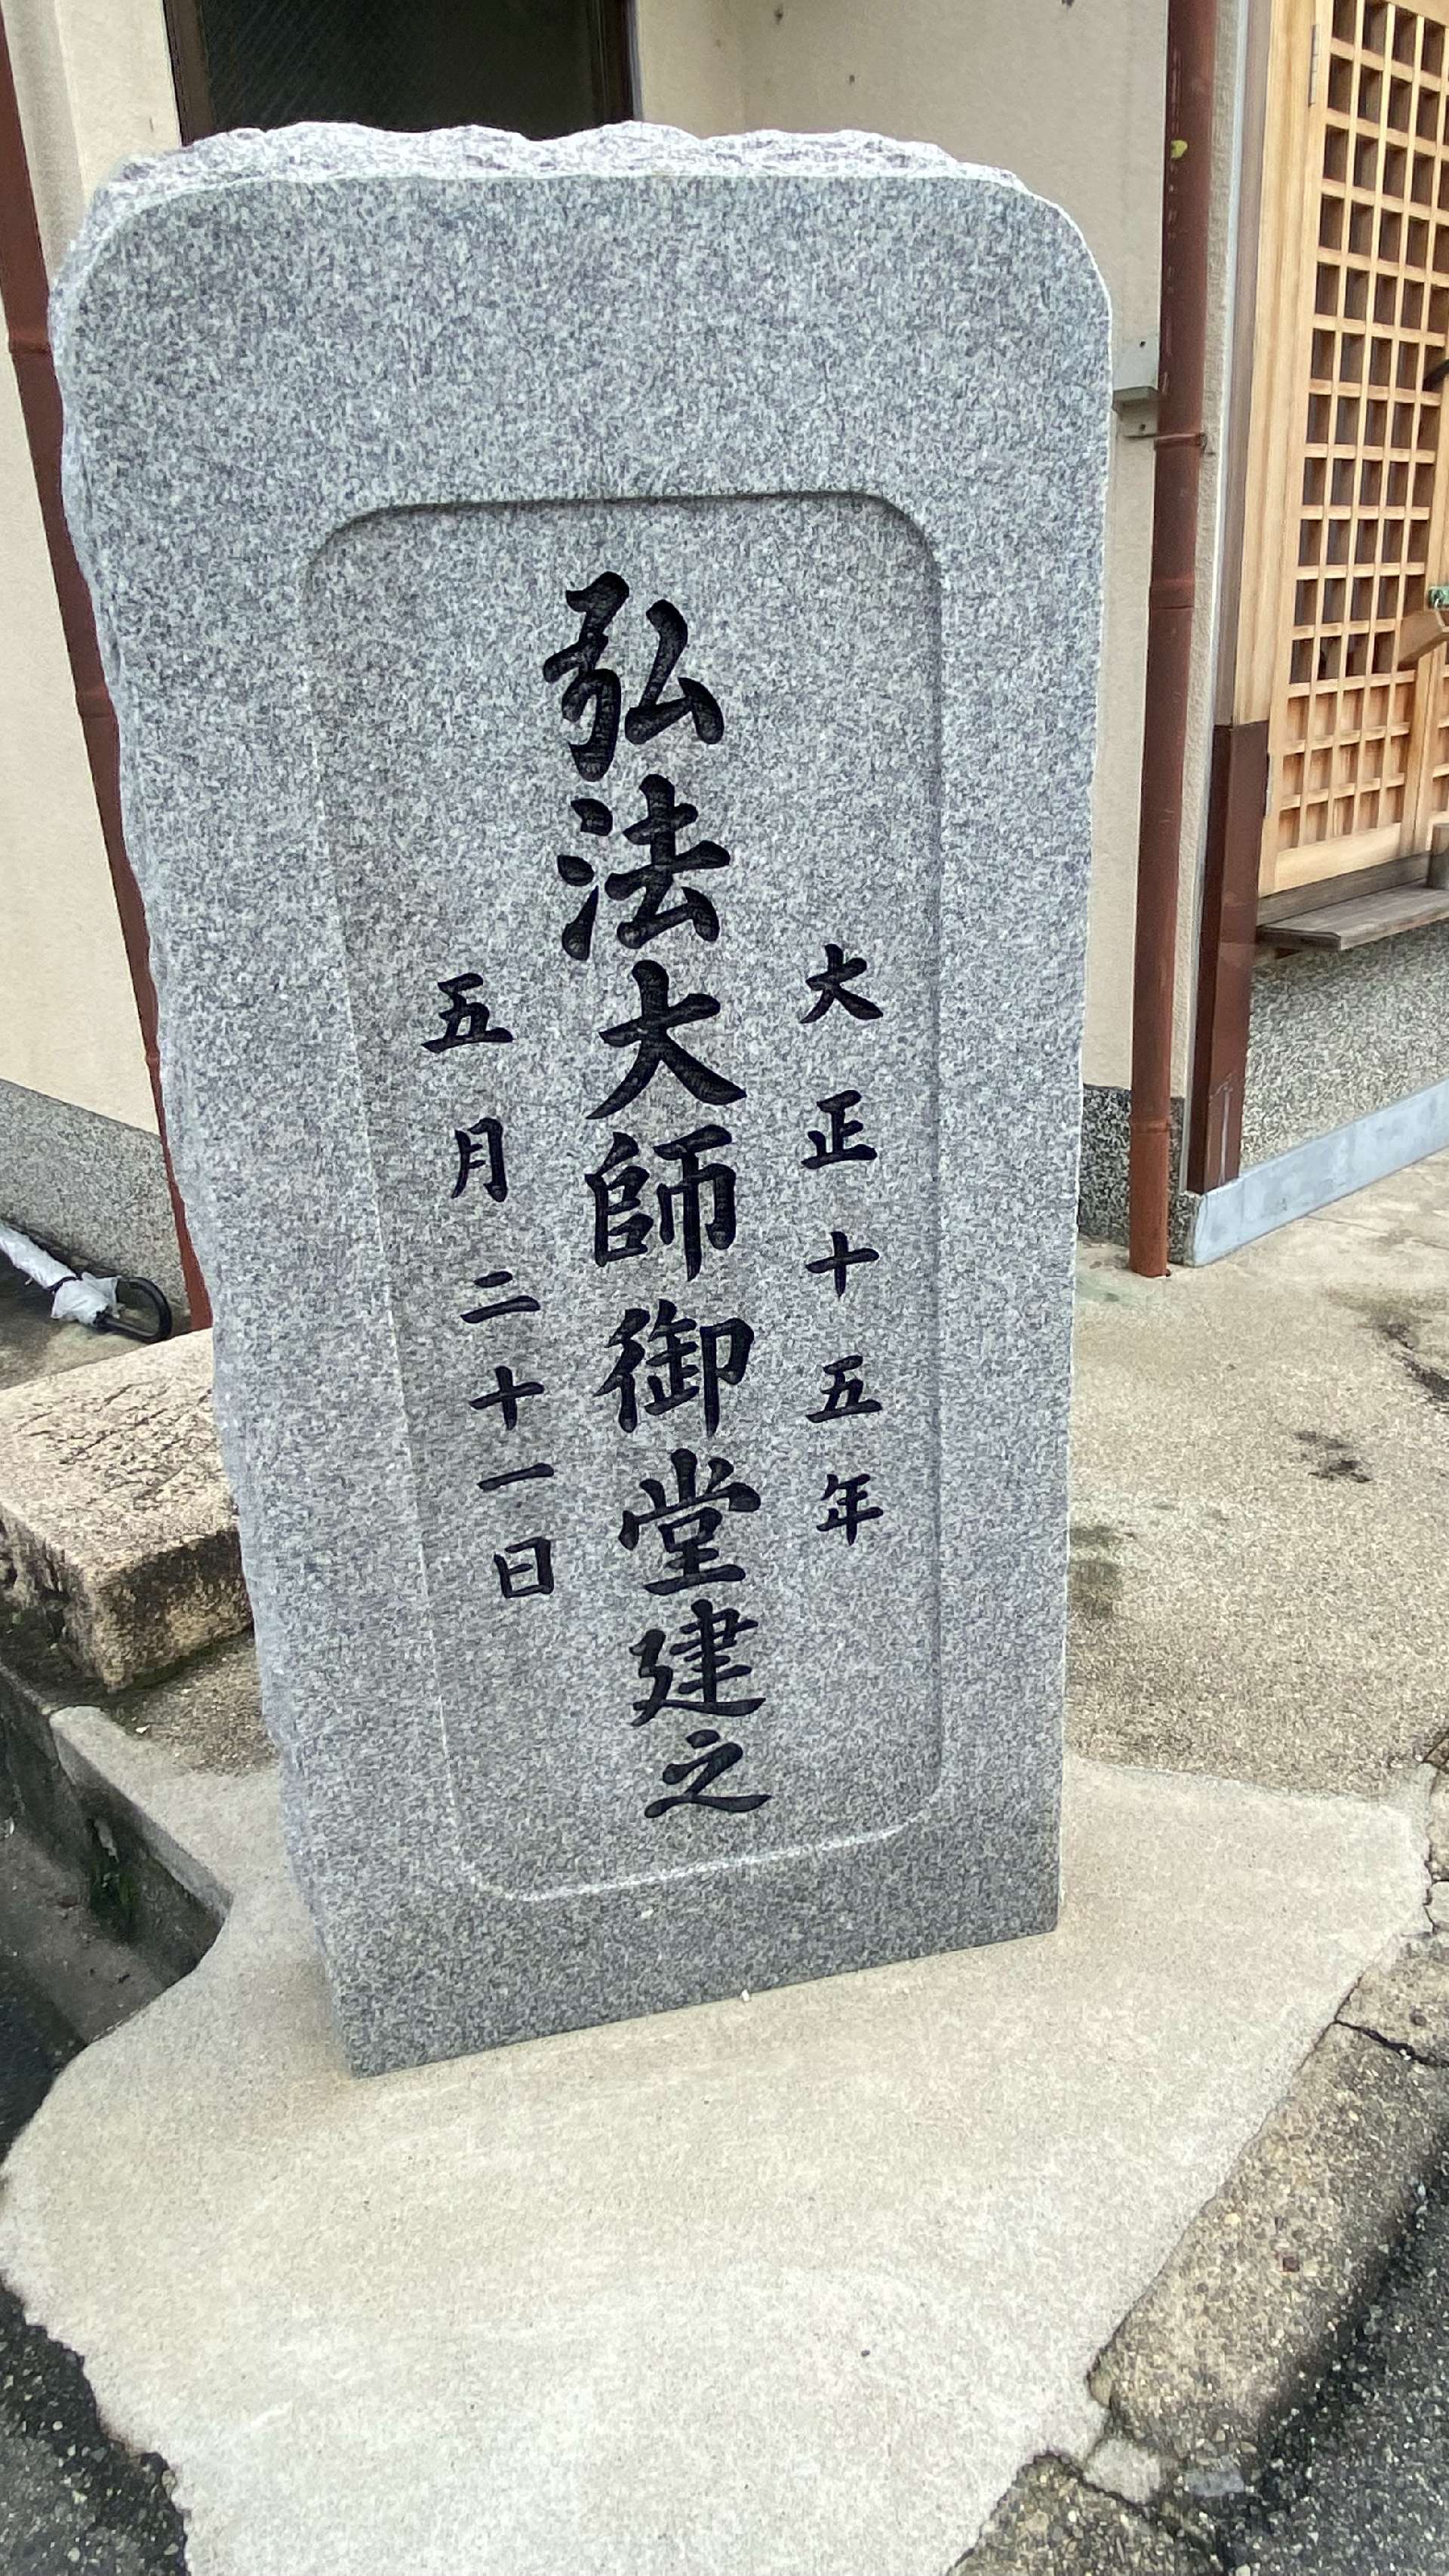 大正十五年
弘法大師御堂建之
五月二十一日